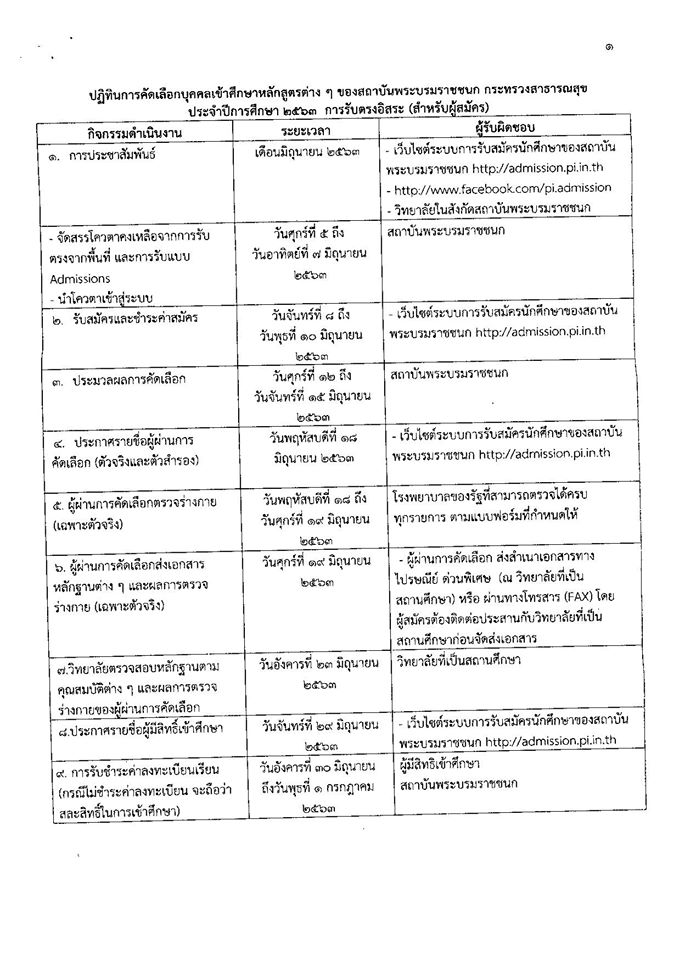 ๑
ปฏิทินการคัดเลือกบุคคลเข้าศึกษาหลักสูตรต่าง ๆ ของสถาบันพระบรมราชชนก กระทรวงสาธารณสุข
ประจำปีการศึกษา ๒๕๖๓ การรับตรงอิสระ (สำหรับผู้สมัคร)
กิจกรรมดำเนินงาน ระยะเวลา ผู้รับผิดชอบ
๑. การประชาสัมพันธ์ เดือนมิถุนายน ๒๕๖๓ - เว็บไซต์ระบบการรับสมัครนักศึกษาของสถาบัน
พระบรมราชชนก http://admission.pi.in.th
- http://www.facebook.com/pi.admission
- วิทยาลัยในสังกัดสถาบันพระบรมราชชนก
- จัดสรรโควตาคงเหลือจากการรับ วันศุกร์ที่ ๕ ถึง สถาบันพระบรมราชชนก
ตรงจากพื้นที่ และการรับแบบ วันอาทิตย์ที่ ๗ มิถุนายน
Admissions ๒๕๖๓
- นำโควตาเข้าสู่ระบบ
๒. รับสมัครและชำระค่าสมัคร วันจันทร์ที่ ๘ ถึง - เว็บไซต์ระบบการรับสมัครนักศึกษาของสถาบัน
วันพุธที่ ๑๐ มิถุนายน พระบรมราชชนก http://admission.pi.in.th
๒๕๖๓
๓. ประมวลผลการคัดเลือก วันศุกร์ที่ ๑๒ ถึง สถาบันพระบรมราชชนก
วันจันทร์ที่ ๑๕ มิถุนายน
๒๕๖๓
๔. ประกาศรายชื่อผู้ผ่านการ วันพฤหัสบดีที่ ๑๘ - เว็บไซต์ระบบการรับสมัครนักศึกษาของสถาบัน
คัดเลือก (ตัวจริงและตัวสำรอง) มิถุนายน ๒๕๖๓ พระบรมราชชนก http://admission.pi.in.th
๕. ผู้ผ่านการคัดเลือกตรวจร่างกาย วันพฤหัสบดีที่ ๑๘ ถึง โรงพยาบาลของรัฐที่สามารถตรวจได้ครบ
(เฉพาะตัวจริง) วันศุกร์ที่ ๑๙ มิถุนายน ทุกรายการ ตามแบบฟอร์มที่กำหนดให้
๒๕๖๓
๖. ผู้ผ่านการคัดเลือกส่งเอกสาร วันศุกร์ที่ ๑๙ มิถุนายน - ผู้ผ่านการคัดเลือก ส่งสำเนาเอกสารทาง
หลักฐานต่าง ๆ และผลการตรวจ ๒๕๖๓ ไปรษณีย์ ด่วนพิเศษ (ณ วิทยาลัยที่เป็น
ร่างกาย (เฉพาะตัวจริง) สถานศึกษา) หรือ ผ่านทางโทรสาร (FAX) โดย
ผู้สมัครต้องติดต่อประสานกับวิทยาลัยที่เป็น
สถานศึกษาก่อนจัดส่งเอกสาร
๗.วิทยาลัยตรวจสอบหลักฐานตาม วันอังคารที่ ๒๓ มิถุนายน วิทยาลัยที่เป็นสถานศึกษา
คุณสมบัติต่าง ๆ และผลการตรวจ ๒๕๖๓
ร่างกายของผู้ผ่านการคัดเลือก
๘.ประกาศรายชื่อผู้มีสิทธิ์เข้าศึกษา วันจันทร์ที่ ๒๙ มิถุนายน - เว็บไซต์ระบบการรับสมัครนักศึกษาของสถาบัน
๒๕๖๓ พระบรมราชชนก http://admission.pi.in.th
๙. การรับชำระค่าลงทะเบียนเรียน วันอังคารที่ ๓๐ มิถุนายน ผู้มีสิทธิเข้าศึกษา
(กรณีไม่ชำระค่าลงทะเบียน จะถือว่า ถึงวันพุธที่ ๑ กรกฎาคม สถาบันพระบรมราชชนก
สละสิทธิ์ในการเข้าศึกษา) ๒๕๖๓